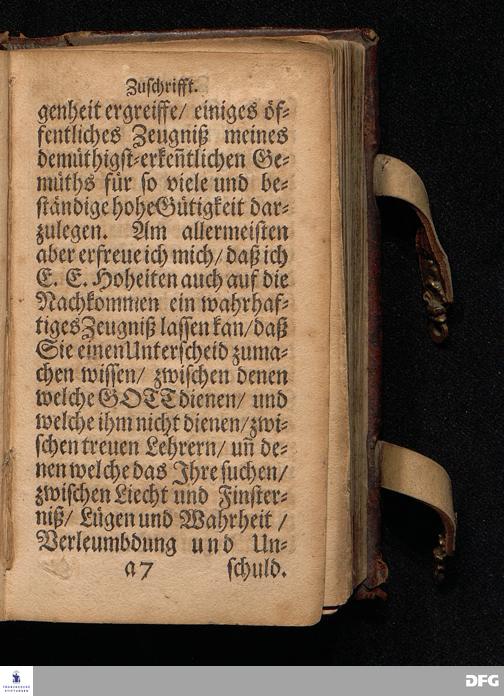 Zuschrifft.
genheit ergreiffe/ einiges öf-
fentliches Zeugniß meines
demüthigst-erkeñtlichen Ge-
müths für so viele und be-
ständige hohe Gütigkeit dar-
zulegen. Am allermeisten
aber erfreue ich mich/ daß ich
E. E. Hoheiten auch auf die
Nachkommen ein wahrhaf-
tiges Zeugniß lassen kan/ daß
Sie einen Unterscheid zuma-
chen wissen/ zwischen denen
welche GOTT dienen/ und
welche ihm nicht dienen/ zwi-
schen treuen Lehrern/ uñ de-
nen welche das Ihre suchen/
zwischen Liecht und Finster-
niß/ Lügen und Wahrheit /
Verleumbdung und Un-
a7 schuld.
FRANCKESCHE
STIFTUNGEN
DFG